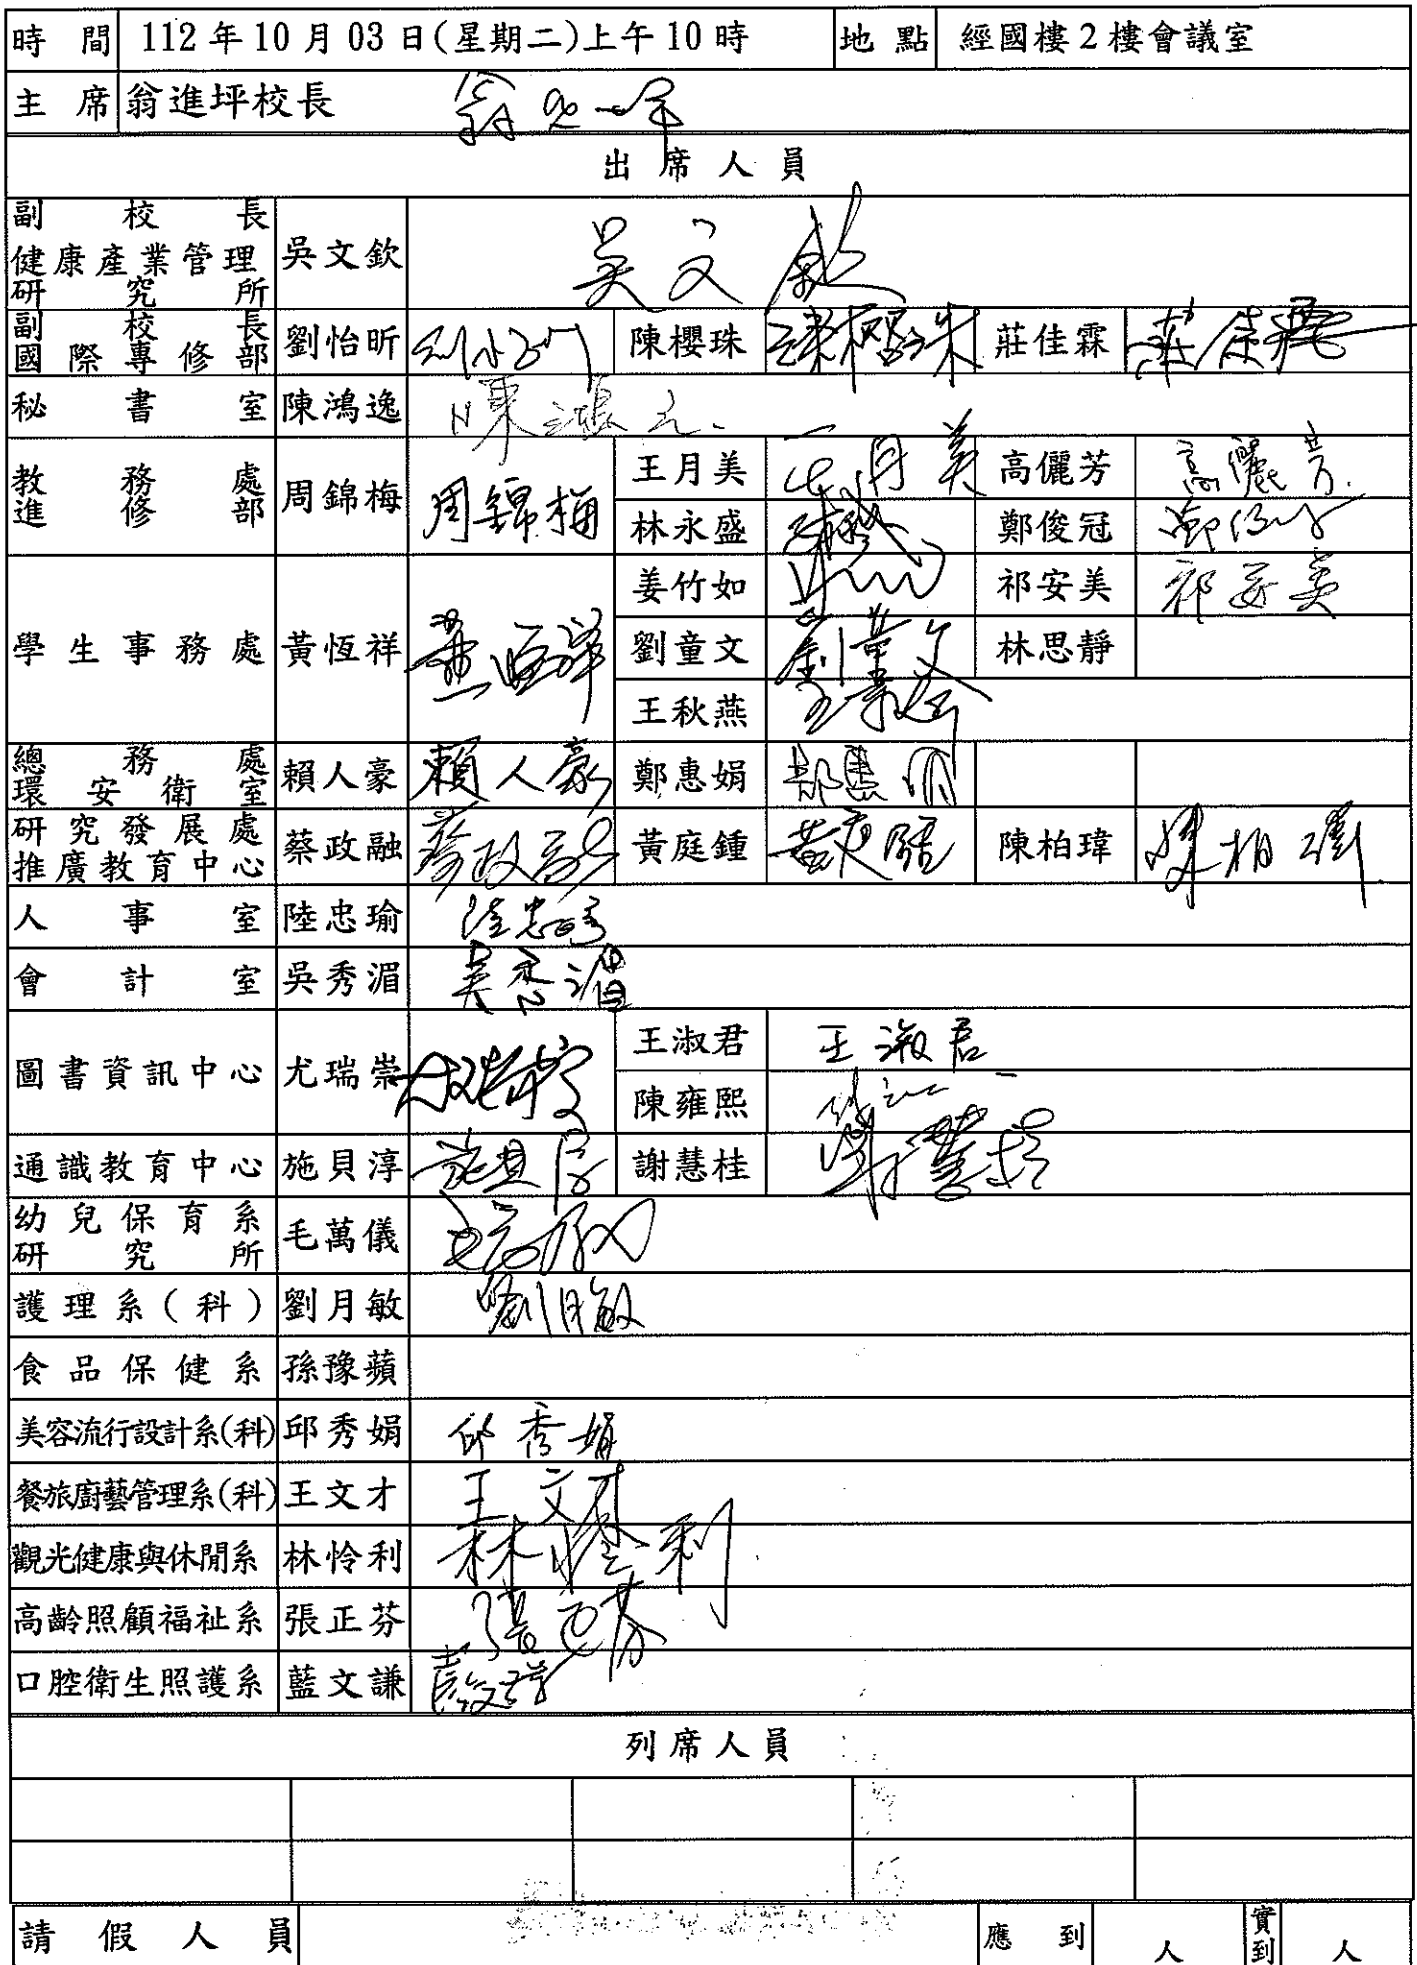 時間 112年10月03日(星期二)上午10時 地點 經國樓2樓會議室
主席 翁進坪校長
出席人員
副校長
健康產業管理研究所 吳文欽 吳文欽
副校長
國際專修部 劉怡昕 陳櫻珠 陳櫻珠 莊佳霖 莊佳霖
秘書室 陳鴻逸 陳鴻逸
教務處
進修部 周錦梅 周錦梅 王月美 王月美 高儷芳 高儷芳
林永盛 鄭俊冠
學生事務處 黃恆祥 黃恆祥 姜竹如 祁安美 祁安美
劉童文 劉童文 林思靜
王秋燕
總務處
環安衛室 賴人豪 賴人豪 鄭惠娟 鄭惠娟
研究發展處
推廣教育中心 蔡政融 蔡政融 黃庭鍾 黃庭鍾 陳柏瑋 陳柏瑋
人事室 陸忠瑜 陸忠瑜
會計室 吳秀湄 吳秀湄
圖書資訊中心 尤瑞崇 王淑君 王淑君
陳雍熙
通識教育中心 施貝淳 施貝淳 謝慧桂 謝慧桂
幼兒保育系
研究所 毛萬儀
護理系(科) 劉月敏 劉月敏
食品保健系 孫豫蘋
美容流行設計系(科) 邱秀娟 邱秀娟
餐旅廚藝管理系(科) 王文才 王文才
觀光健康與休閒系 林怜利
高齡照顧福祉系 張正芬 張正芬
口腔衛生照護系 藍文謙
列席人員
請假人員 應到 人 實到 人